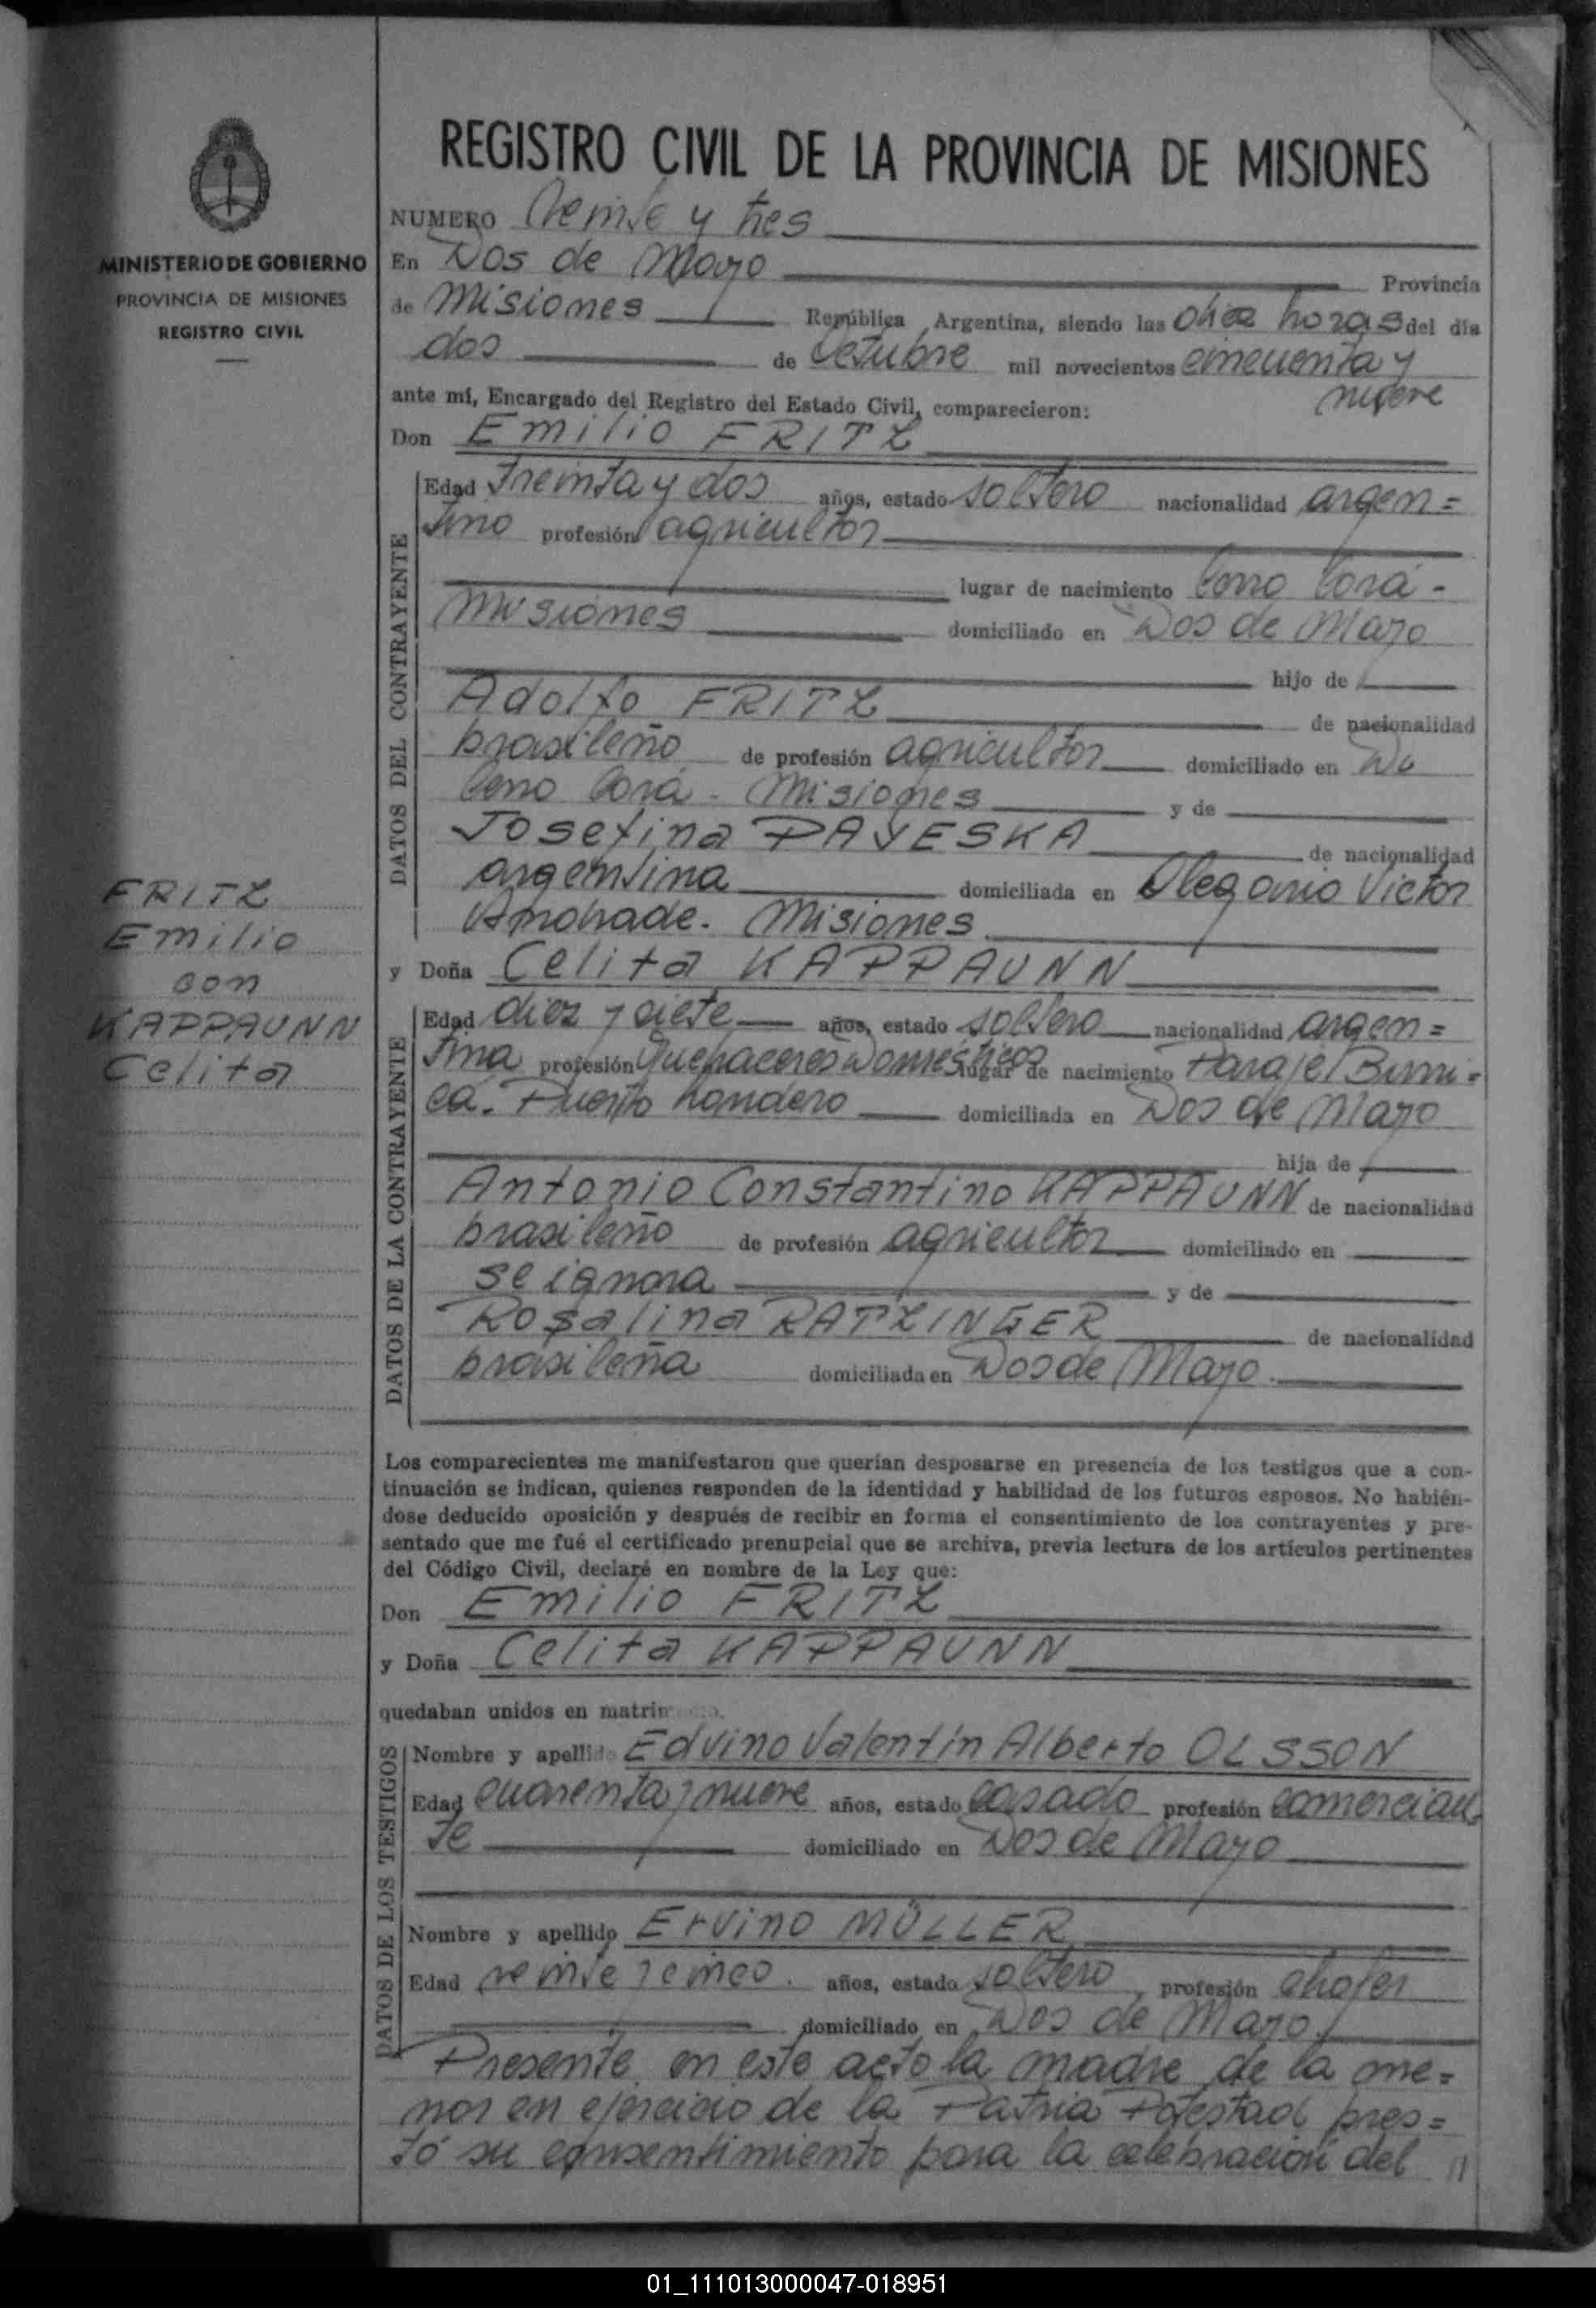 REGISTRO CIVIL DE LA PROVINCIA DE MISIONES
MINISTERIO DE GOBIERNO
PROVINCIA DE MISIONES
REGISTRO CIVIL
NUMERO Veinte y tres
En Dos de Mayo Provincia
de Misiones República Argentina, siendo las diez horas del día
dos de Octubre mil novecientos cincuenta y
nueve
ante mí, Encargado del Registro del Estado Civil, comparecieron:
Don Emilio FRITZ
DATOS DEL CONTRAYENTE
Edad treinta y dos años, estado soltero nacionalidad argen=
tino profesión agricultor
lugar de nacimiento Cerro Corá -
Misiones domiciliado en Dos de Mayo
hijo de
Adolfo FRITZ de nacionalidad
brasileño de profesión agricultor domiciliado en
Cerro Corá - Misiones y de
Josefina PAYESKA de nacionalidad
argentina domiciliada en Olegario Victor
Andrade. Misiones
FRITZ
Emilio
con
KAPPAUNN
Celita
y Doña Celita KAPPAUNN
DATOS DE LA CONTRAYENTE
Edad diez y siete años, estado soltero nacionalidad argen=
tina profesión Quehaceres Domésticos lugar de nacimiento Paraje
Puerto domiciliada en Dos de Mayo
hija de
Antonio Constantino KAPPAUNN de nacionalidad
brasileño de profesión agricultor domiciliado en
se ignora y de
Rosalina RATZINGER de nacionalidad
brasileña domiciliada en Dos de Mayo.
Los comparecientes me manifestaron que querían desposarse en presencia de los testigos que a con-
tinuación se indican, quienes responden de la identidad y habilidad de los futuros esposos. No habién-
dose deducido oposición y después de recibir en forma el consentimiento de los contrayentes y pre-
sentado que me fué el certificado prenupcial que se archiva, previa lectura de los artículos pertinentes
del Código Civil, declaré en nombre de la Ley que:
Don Emilio FRITZ
y Doña Celita KAPPAUNN
quedaban unidos en
DATOS DE LOS TESTIGOS
Nombre y apellido Edvino Valentín Alberto OLSSON
Edad cuarenta y nueve años, estado casado profesión comercian
te domiciliado en Dos de Mayo
Nombre y apellido Ervino MÜLLER
Edad veinte y cinco. años, estado soltero profesión chofer
domiciliado en Dos de Mayo.
Presente en este acto la madre de la me=
nor en ejercicio de la Patria Potestad pres=
tó su consentimiento para la celebración del //
01_111013000047-018951